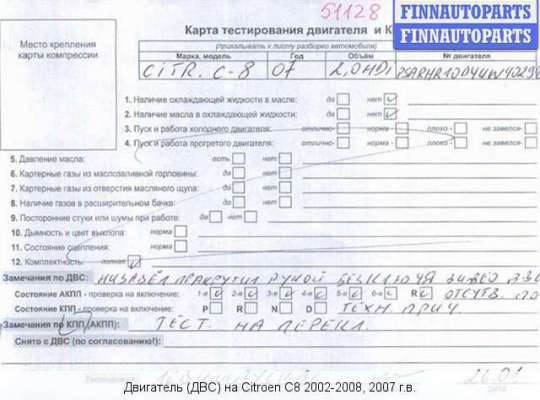 51128
FINNAUTOPARTS
FINNAUTOPARTS
Карта тестирования двигателя и К
(прикалывать к листу разборки автомобиля)
Место крепления карты компрессии
Марка, модель Год Объём № двигателя
CITR. C-8 07 2,0HDi
1. Наличие охлаждающей жидкости в масле: да нет
2. Наличие масла в охлаждающей жидкости: да нет
3. Пуск и работа холодного двигателя: отлично- норма- плохо- не завелся-
4. Пуск и работа прогретого двигателя: отлично- норма- плохо- не завелся-
5. Давление масла: есть нет
6. Картерные газы из маслозаливной горловины: да нет
7. Картерные газы из отверстия масляного щупа: да нет
8. Наличие газов в расширительном бачке: да нет
9. Посторонние стуки или шумы при работе: да нет
10. Дымность и цвет выхлопа: норма
11. Состояние сцепления: норма
12. Комплектность: полная
Замечания по ДВС: РУКОЙ
Состояние АКПП - проверка на включение: 1-я 2-я 3-я 4-я 5-я 6-я R ОТСУТВ. ПО
Состояние КПП - проверка на включение: P R N D ТЕХН. ПРИЧ
Замечания по КПП (АКПП): ТЕСТ. НА ПЕРЕКЛ.
Снято с ДВС (по согласованию!):
26.01
Двигатель (ДВС) на Citroen C8 2002-2008, 2007 г.в.